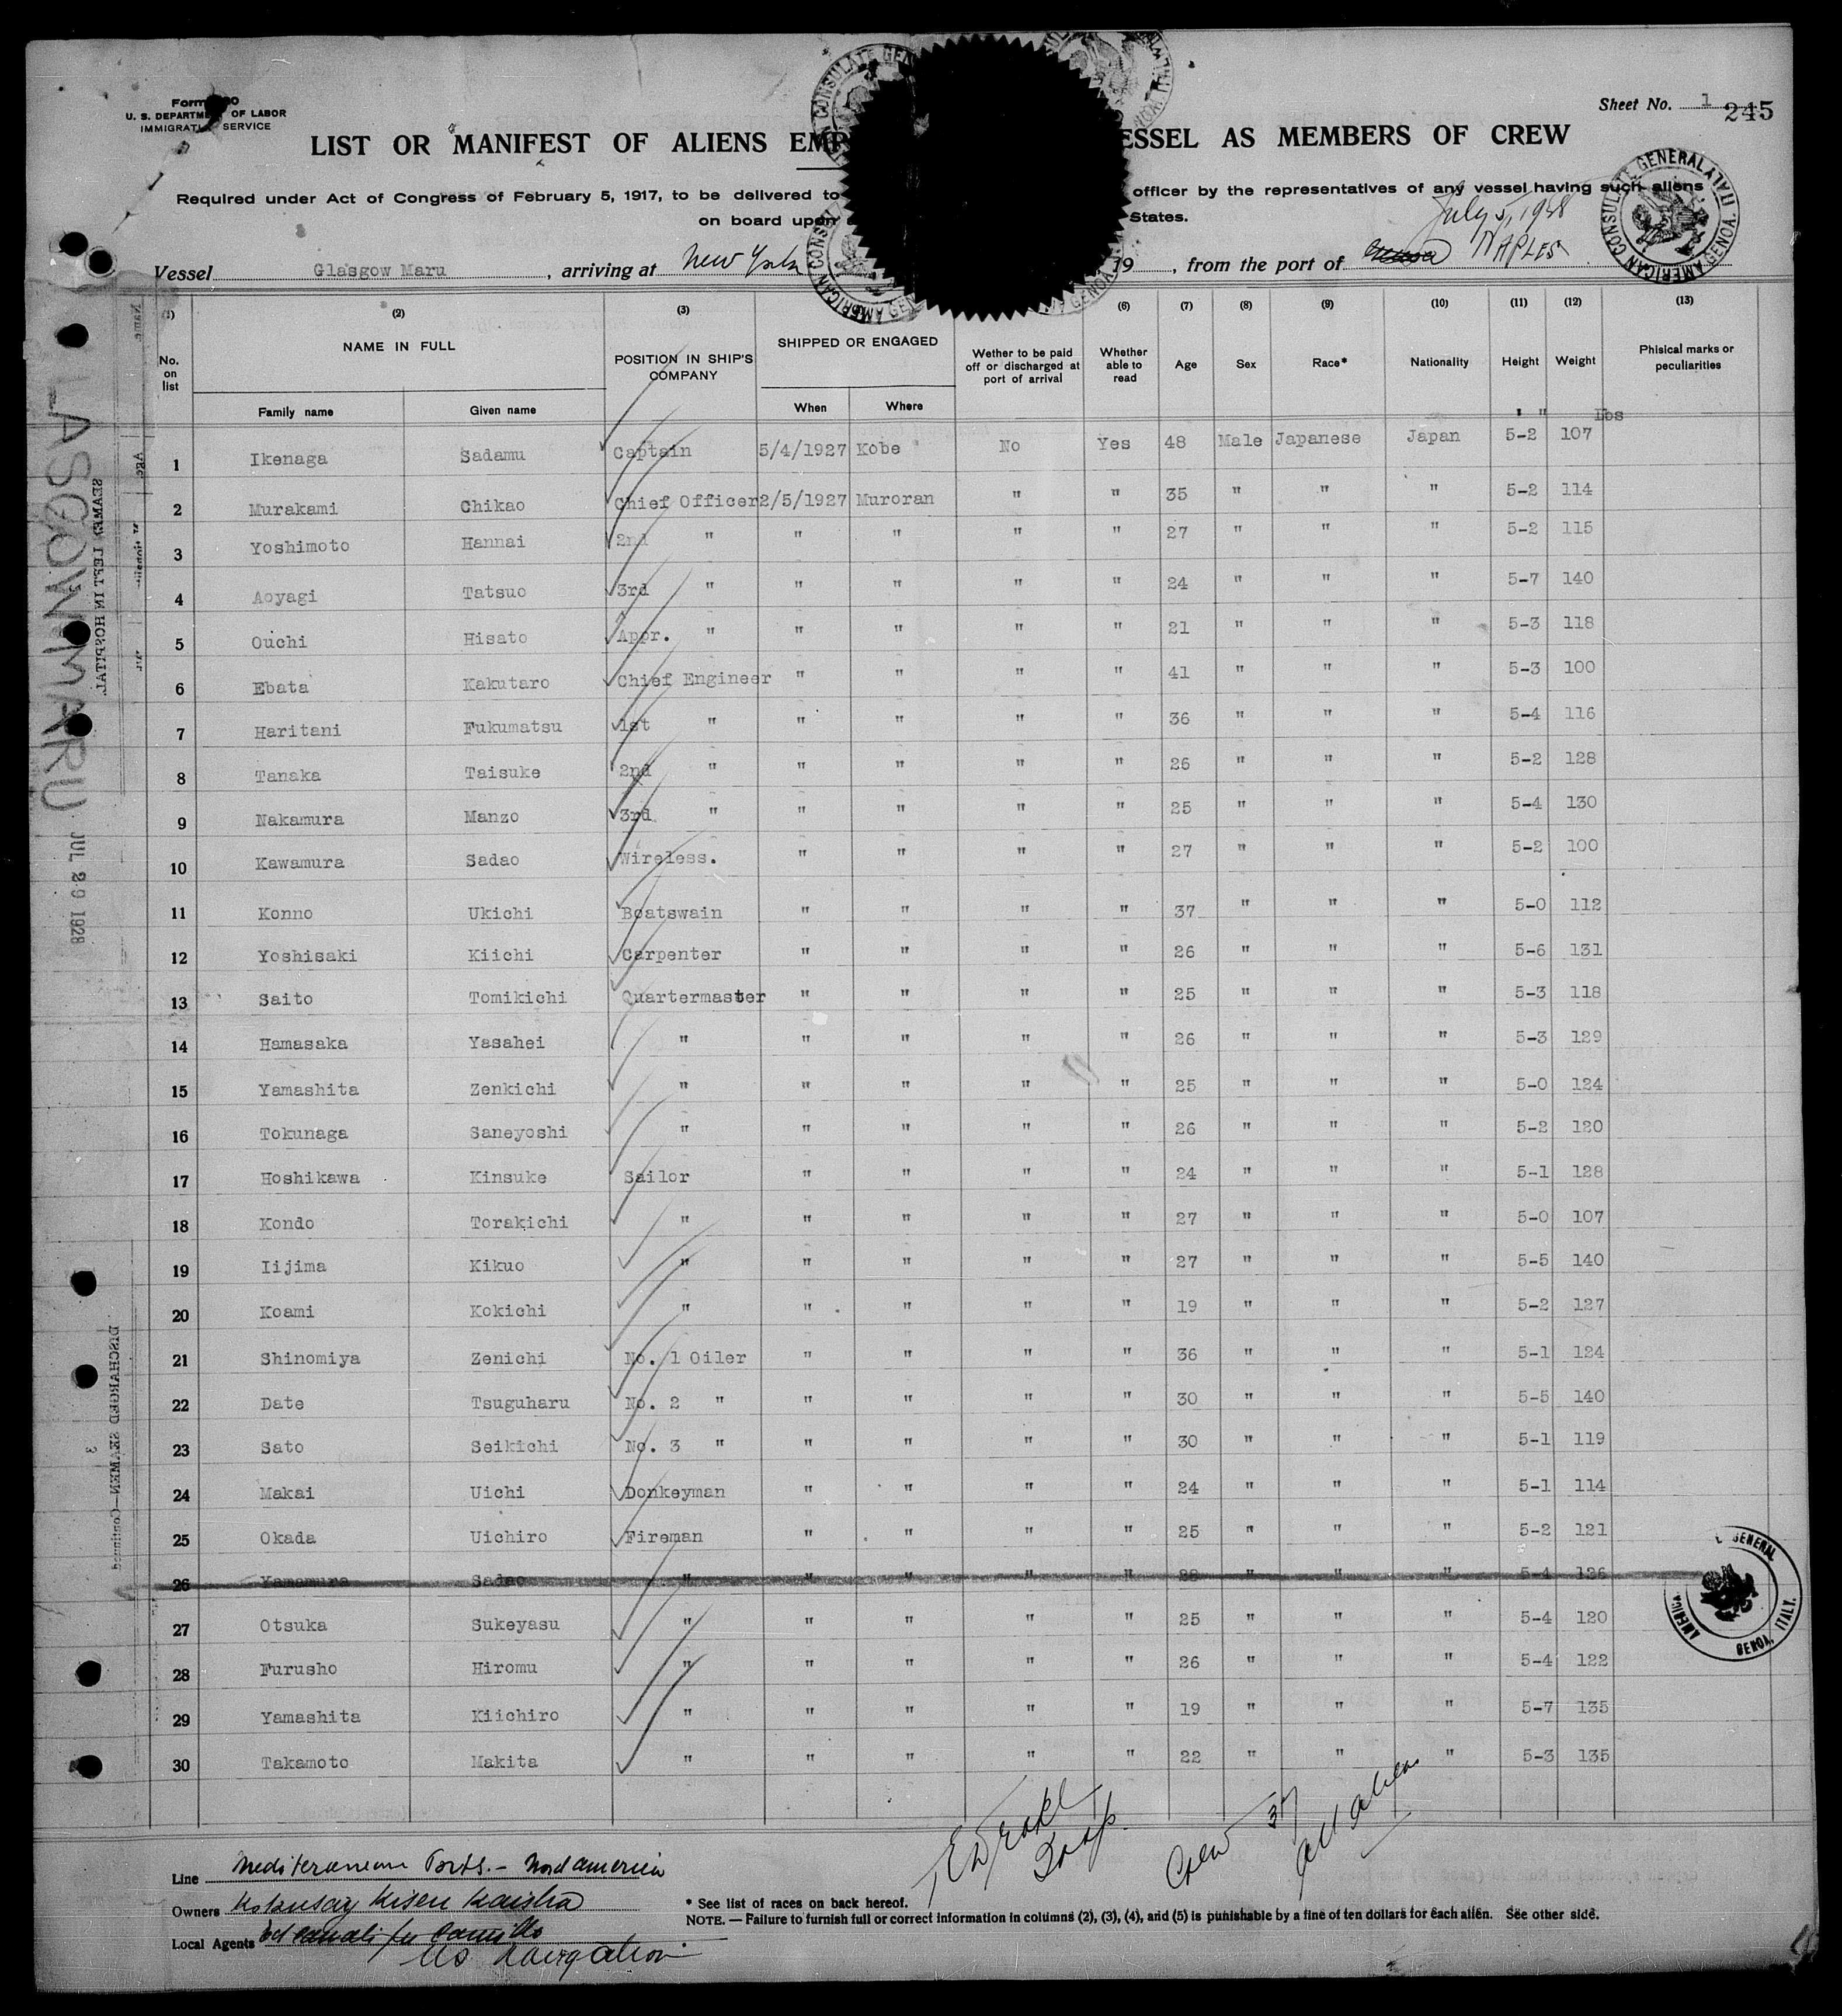 Sheet No. 1
245
U. S. DEPARTMENT OF LABOR
IMMIGRATION SERVICE
LIST OR MANIFEST OF ALIENS EMP ESSEL AS MEMBERS OF CREW
Required under Act of Congress of February 5, 1917, to be delivered to officer by the representatives of any vessel having such aliens
on board upon States.
July 5, 1928
Vessel Glasgow Maru , arriving at New York 19 , from the port of NAPLES
AMERICAN CONSULATE GENERAL GENOA, ITALY
(1) (2) (3) (6) (7) (8) (9) (10) (11) (12) (13)
No. on list NAME IN FULL POSITION IN SHIP'S COMPANY SHIPPED OR ENGAGED Wether to be paid off or discharged at port of arrival Whether able to read Age Sex Race* Nationality Height Weight Phisical marks or peculiarities
Family name Given name When Where ' " Lbs
1 Ikenaga Sadamu Captain 5/4/1927 Kobe No Yes 48 Male Japanese Japan 5-2 107
2 Murakami Chikao Chief Officer 2/5/1927 Muroran " " 35 " " " 5-2 114
3 Yoshimoto Hannai 2nd " " " " " 27 " " " 5-2 115
4 Aoyagi Tatsuo 3rd " " " " " 24 " " " 5-7 140
5 Ouchi Hisato Appr. " " " " " 21 " " " 5-3 118
6 Ebata Kakutaro Chief Engineer " " " " 41 " " " 5-3 100
7 Haritani Fukumatsu 1st " " " " " 36 " " " 5-4 116
8 Tanaka Taisuke 2nd " " " " " 26 " " " 5-2 128
9 Nakamura Manzo 3rd. " " " " " 25 " " " 5-4 130
10 Kawamura Sadao Wireless. " " " " 27 " " " 5-2 100
11 Konno Ukichi Boatswain " " " " 37 " " " 5-0 112
12 Yoshisaki Kiichi Carpenter " " " " 26 " " " 5-6 131
13 Saito Tomikichi Quartermaster " " " " 25 " " " 5-3 118
14 Hamasaka Yasahei " " " " " 26 " " " 5-3 129
15 Yamashita Zenkichi " " " " " 25 " " " 5-0 124
16 Tokunaga Saneyoshi " " " " " 26 " " " 5-2 120
17 Hoshikawa Kinsuke Sailor " " " " 24 " " " 5-1 128
18 Kondo Torakichi " " " " " 27 " " " 5-0 107
19 Iijima Kikuo " " " " " 27 " " " 5-5 140
20 Koami Kokichi " " " " " 19 " " " 5-2 127
21 Shinomiya Zenichi No. 1 Oiler " " " " 36 " " " 5-1 124
22 Date Tsuguharu No. 2 " " " " " 30 " " " 5-5 140
23 Sato Seikichi No. 3 " " " " " 30 " " " 5-1 119
24 Makai Uichi Donkeyman " " " " 24 " " " 5-1 114
25 Okada Uichiro Fireman " " " " 25 " " " 5-2 121
26 Yamamura Sadao " " " " " 28 " " " 5-4 126
27 Otsuka Sukeyasu " " " " " 25 " " " 5-4 120
28 Furusho Hiromu " " " " " 26 " " " 5-4 122
29 Yamashita Kiichiro " " " " " 19 " " " 5-7 135
30 Takamoto Makita " " " " " 22 " " " 5-3 135
Crew 37
all aliens
Line Mediterranean Ports. - Nord america
Owners Kokusay Kisen Kaisha
Local Agents
US Navigation
* See list of races on back hereof.
NOTE. — Failure to furnish full or correct information in columns (2), (3), (4), and (5) is punishable by a fine of ten dollars for each alien. See other side.
GLASGOW MARU
JUL 29 1928
SEAMEN LEFT IN HOSPITAL
DISCHARGED SEAMEN—Continued
3